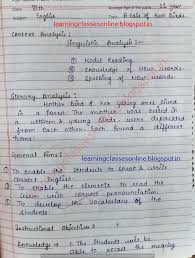 Class: VIth Average Age of the pupils: 11 year
Subject: English Topic: A tale of two Birds
learningclassesonline.blogspot.in
Content Analysis :
Linguistic Analysis :-
① Model Reading.
② Knowledge of New words.
③ Spelling of New words.
Literary Analysis :
Mother bird & her young ones lived
in a forest. The mother was killed in a
and young birds were departed
from each other. Each found a different
home.
General Aims :
learningclassesonline.blogspot.in
① To enable the students to speak & write
correct English.
② To enable the students to read the
lesson with correct pronunciation.
③ To develop the vocabulary of the
Students.
Instructional Objectives :
learningclassesonline.blogspot.in
Knowledge → ① The students will be
able to recall the meaning